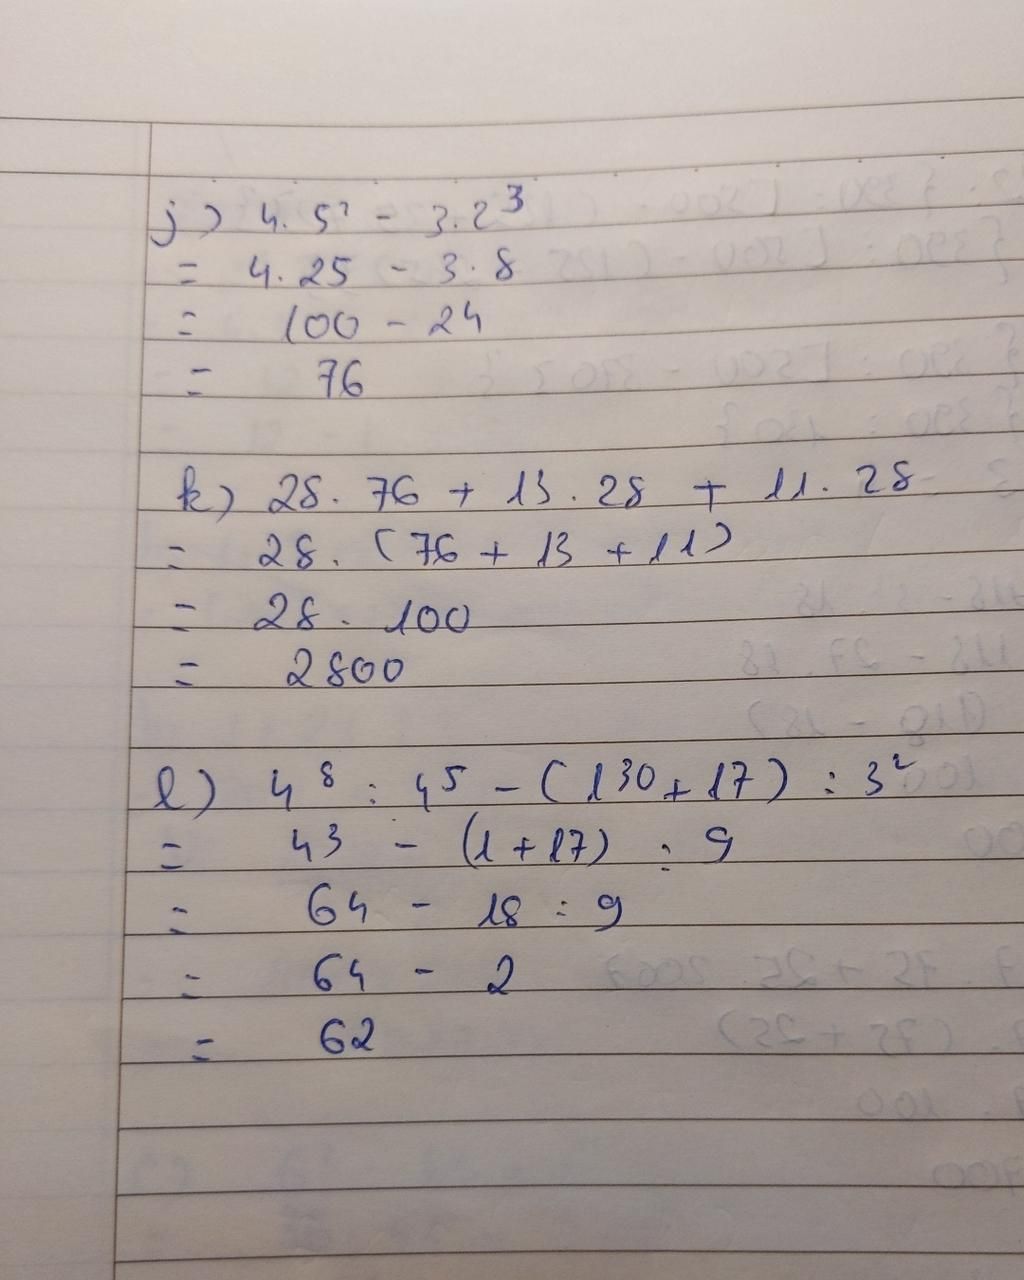 j) 4.5² - 3.2³
= 4.25 - 3.8
= 100 - 24
= 76
k) 28.76 + 13.28 + 11.28
= 28.(76 + 13 + 11)
= 28.100
= 2800
l) 4⁸ : 4⁵ - (1³⁰ + 17) : 3²
= 4³ - (1 + 17) : 9
= 64 - 18 : 9
= 64 - 2
= 62